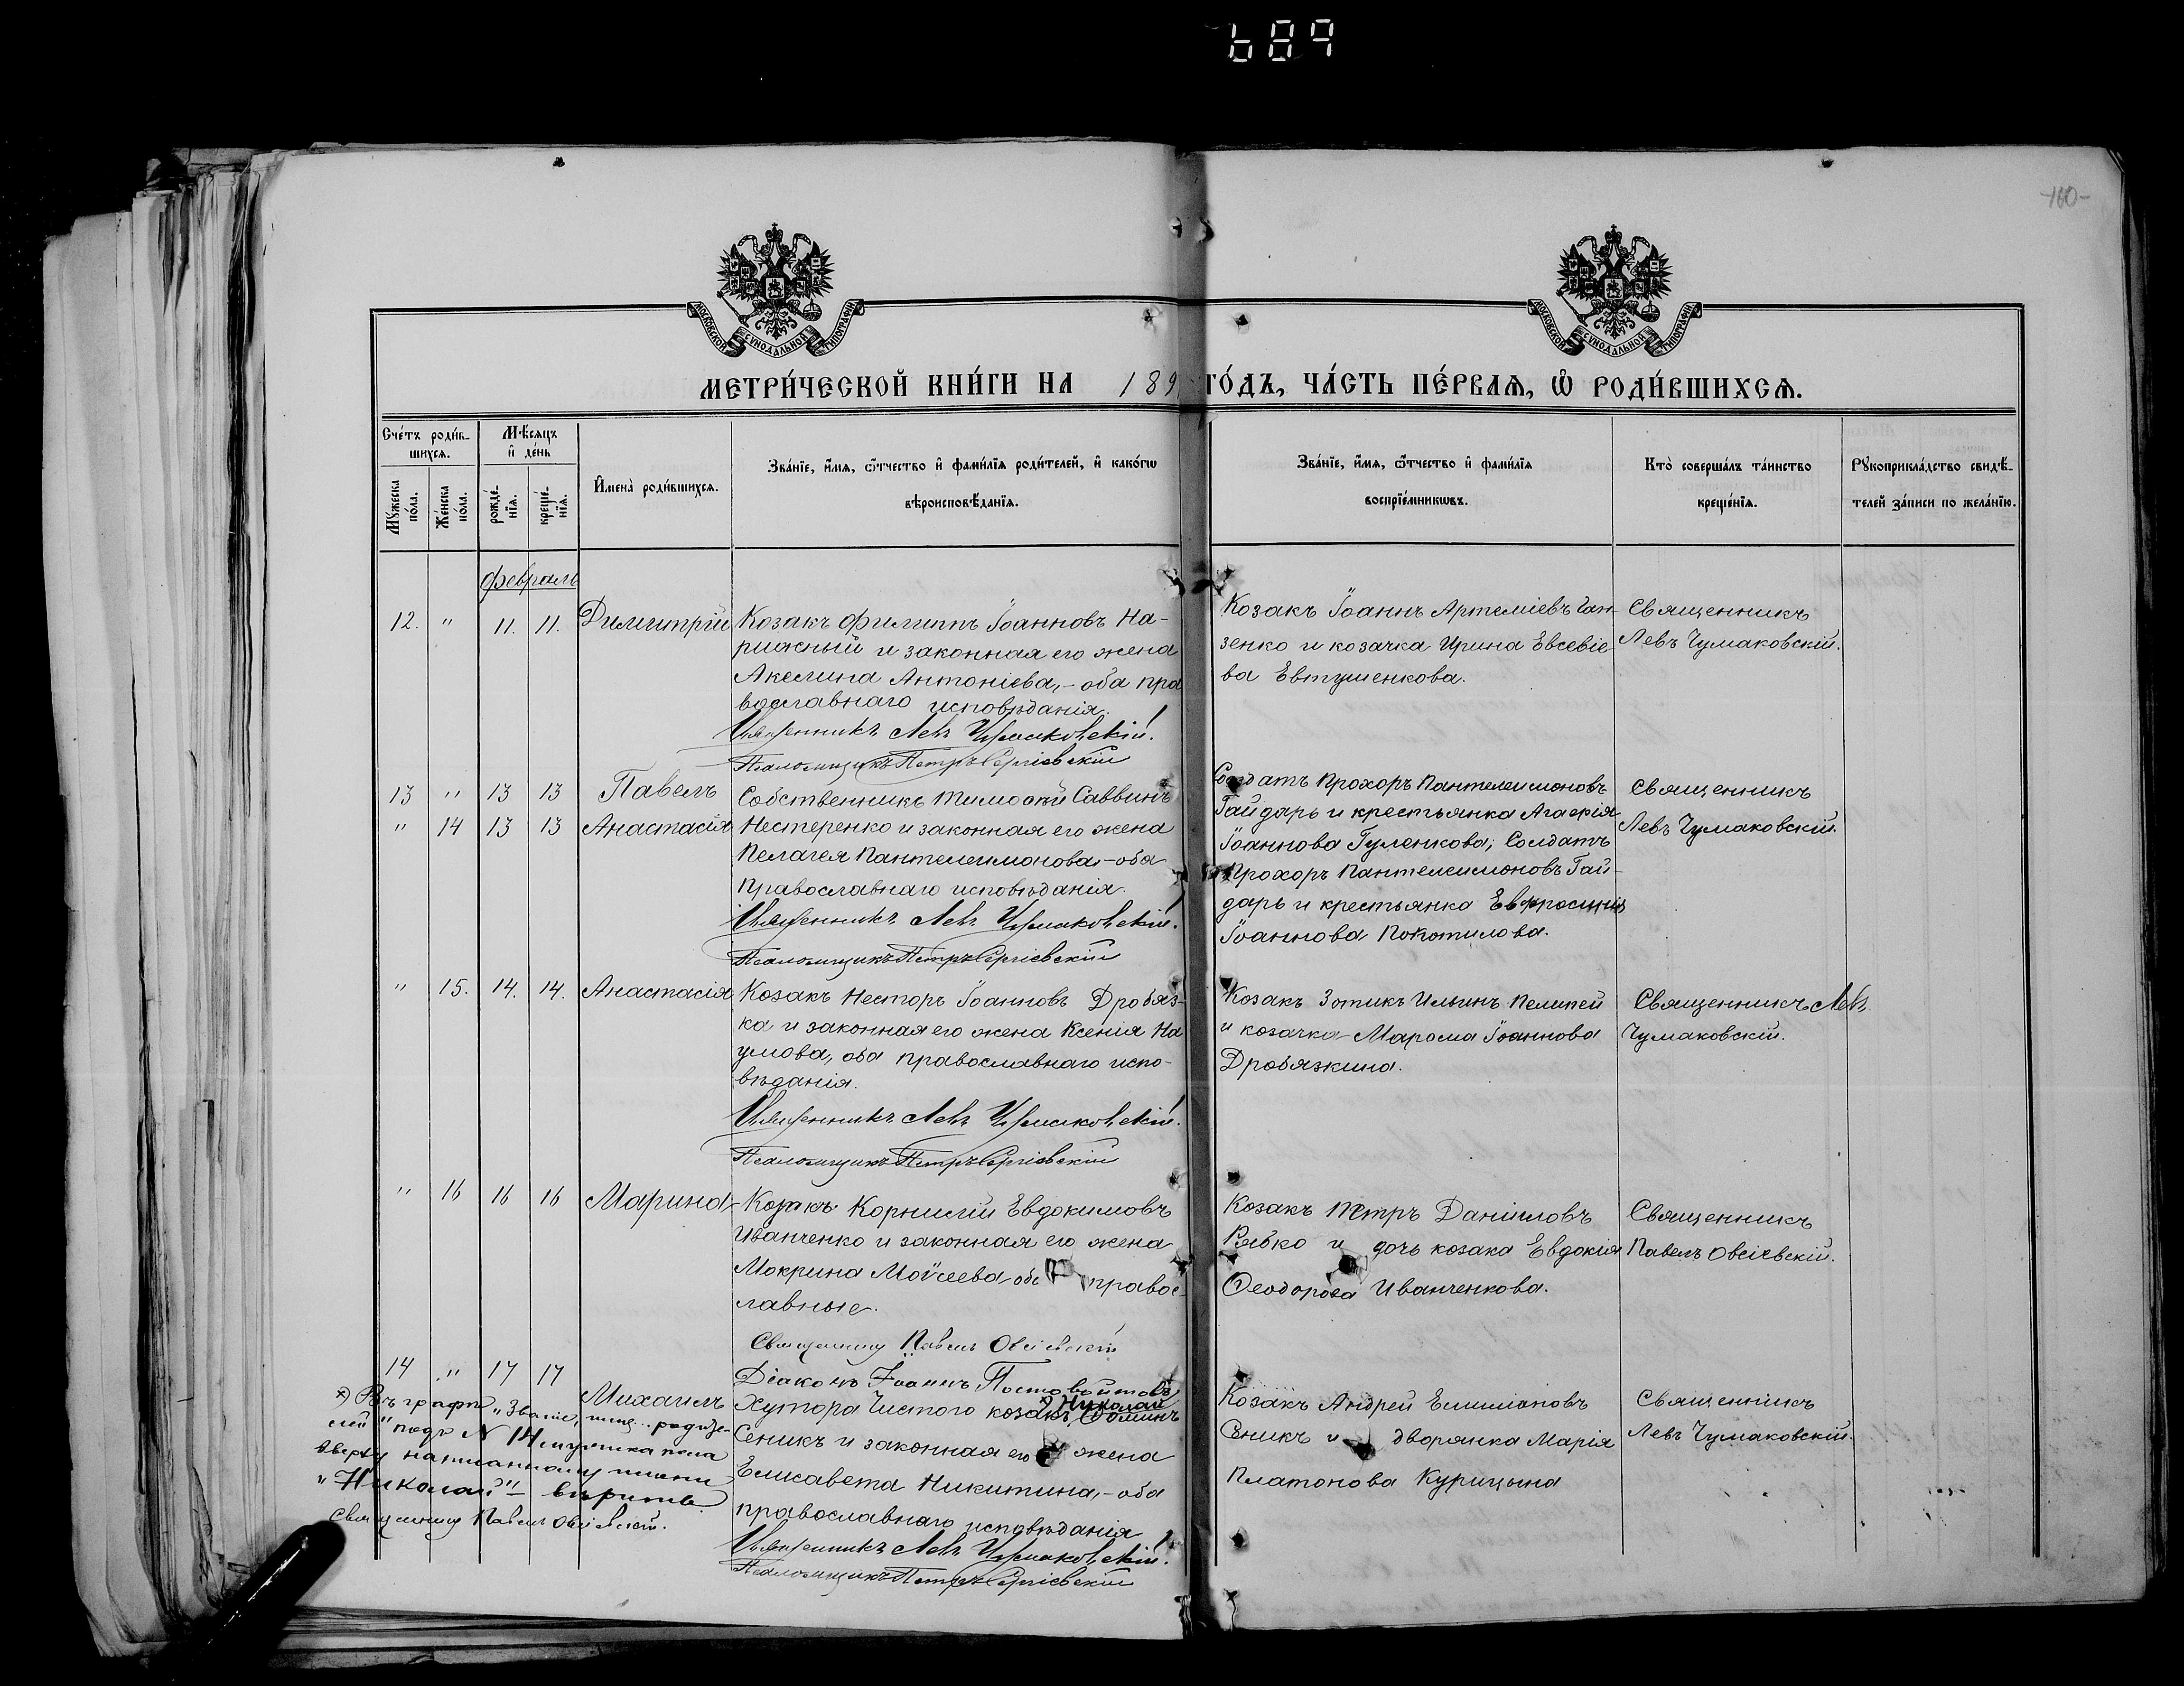 689
160-
МОСКОВСКОЙ СУНОДАЛЬНОЙ ТИПОГРАФІИ
МОСКОВСКОЙ СУНОДАЛЬНОЙ ТИПОГРАФІИ
МЕТРИ́ЧЕСКОЙ КНИ́ГИ НА 189 ГО́ДЪ, ЧА́СТЬ ПЕ́РВАѦ, Ѡ РОДИ́ВШИХСѦ.
Сче́тъ роди́в-
шихсѧ.
Мꙋжеска по́ла.
Же́нска по́ла.
Мѣ́сѧцъ
и де́нь
рожде́-
нїѧ.
креще́-
нїѧ.
И҆мена̀ роди́вшихсѧ.
Зва́нїе, и҆́мѧ, ѻ҆́тчество и҆ фами́лїѧ роди́телей, и҆ како́гѡ
вѣроисповѣ́данїѧ.
Зва́нїе, и҆́мѧ, ѻ҆́тчество и҆ фами́лїѧ
воспрїе́мникѡвъ.
Кто̀ соверша́лъ та́инство
креще́нїѧ.
Рꙋкоприкла́дство свидѣ́-
телей за́писи по жела́нїю.
Февраль
12. " 11. 11. Димитрій
Козакъ Филиппъ Іоанновъ На-
рижный и законная его жена
Акелина Антоніева,- оба пра
вославнаго исповѣданія.
Священникъ Левъ Чумаковскій.
Псаломщикъ Петръ Сергіевскій
Козакъ Іоаннъ Артеміевъ Ган-
зенко и козачка Ирина Евсевіе
ва Евтушенкова.
Священникъ
Левъ Чумаковскій.
13 " 13 13 Павелъ
" 14 13 13 Анастасія
Собственникъ Тимоѳей Саввинъ
Нестеренко и законная его жена
Пелагея Пантелеимонова,- оба
православнаго исповѣданія.
Священникъ Левъ Чумаковскій.
Псаломщикъ Петръ Сергіевскій
Солдатъ Прохоръ Пантелеимоновъ
Гайдаръ и крестьянка Агафія
Іоаннова Гуленкова; Солдатъ
Прохоръ Пантелеимоновъ Гай-
даръ и крестьянка Евфросинія
Іоаннова Покотилова.
Священникъ
Левъ Чумаковскій.
" 15. 14. 14. Анастасія
Козакъ Несторъ Іоанновъ Дробяз-
ка и законная его жена Ксенія На
умова, оба православнаго испо-
вѣданія.
Священникъ Левъ Чумаковскій.
Псаломщикъ Петръ Сергіевскій
Козакъ Зотикъ Ильинъ Пелипей
и козачка Марѳа Іоаннова
Дробязкина.
Священникъ Левъ
Чумаковскій.
" 16 16 16 Марина
Козакъ Корнилій Евдокимовъ
Иванченко и законная его жена
Мокрина Моѵсеева оба правос-
лавные.
Священникъ Павелъ Овсіевскій
Діаконъ Іоаннъ Постовойтовъ
Козакъ Петръ Даніиловъ
Рябко и дочь козака Евдокія
Ѳеодорова Иванченкова.
Священникъ
Павелъ Овсіевскій.
14 " 17 17
Михаилъ
Хутора Чистого козакъ Ѳоминъ
*) Николай
Сеникъ и законная его жена
Елисавета Никитина,- оба
православнаго исповѣданія
Священникъ Левъ Чумаковскій.
Псаломщикъ Петръ Сергіевскій
Козакъ Андрей Емиліановъ
Сеникъ и дворянка Марія
Платонова Курицына
Священникъ
Левъ Чумаковскій.
*) Въ графѣ „Званіе, имя... родите-
лей" подъ N 14 мужска пола
вверху написанному имени
„Николай" вѣрить.
Священникъ Павелъ Овсіевскій.